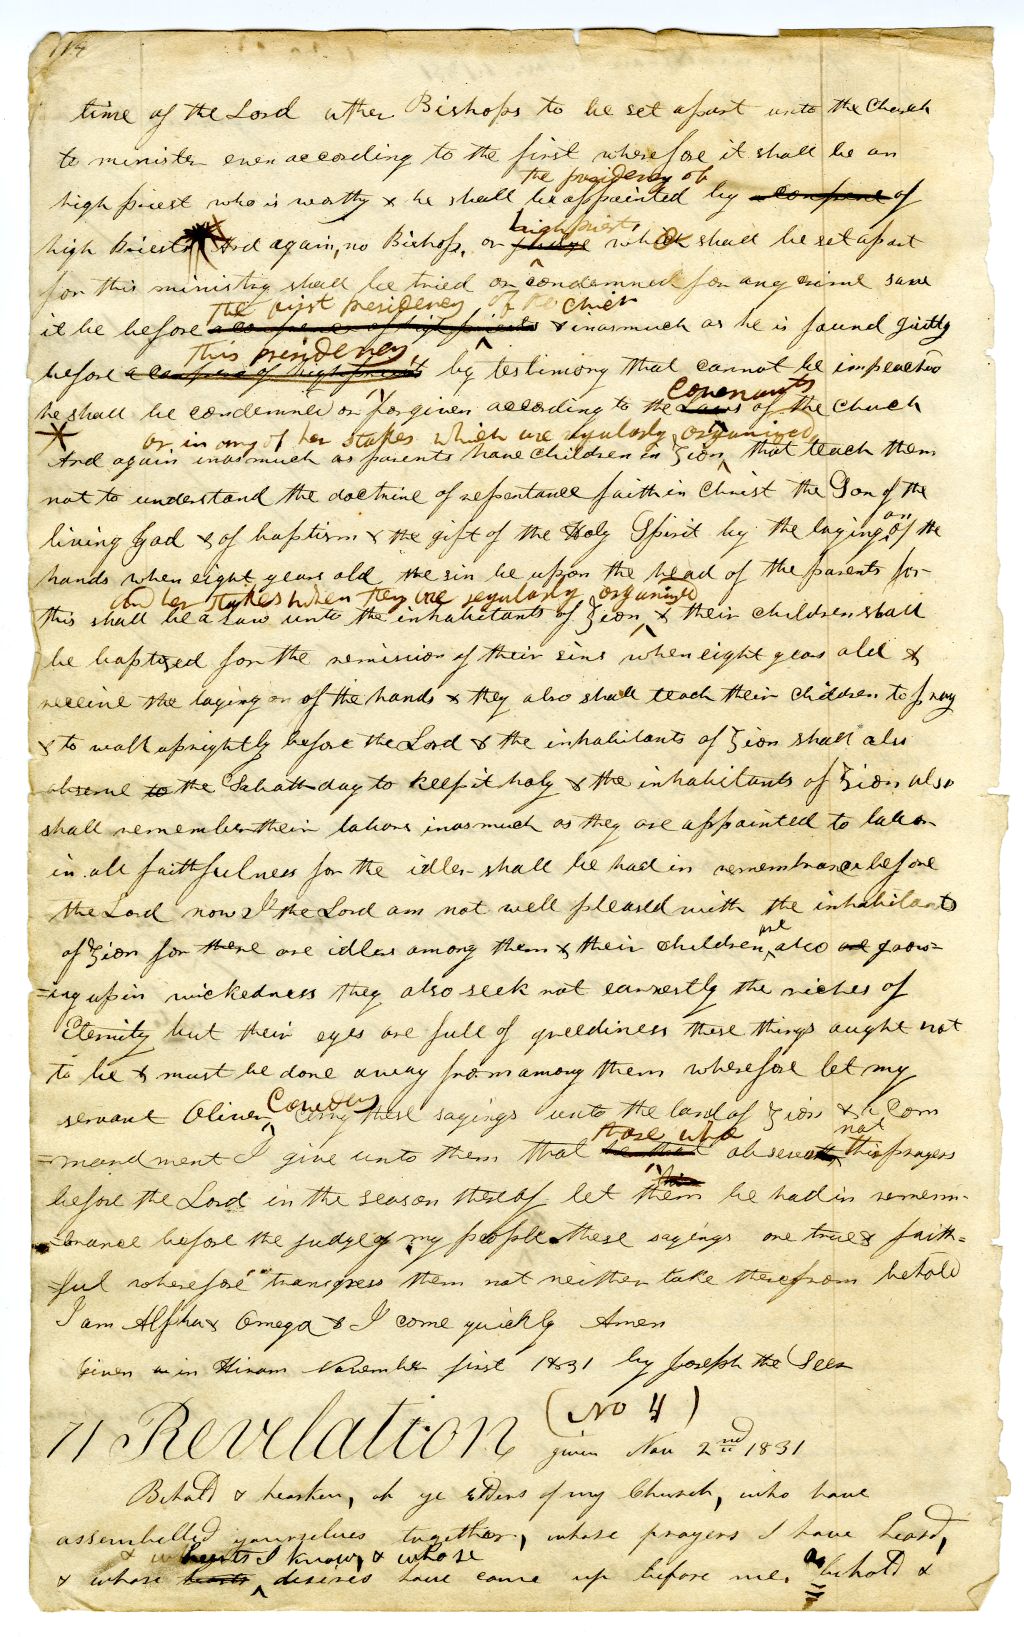 114
time of the Lord other Bishops to be set apart unto the Church
to minister even according to the first wherefore it shall be an
the presidency of
high priest who is worthy & he shall be appointed by a confrence of
high priests
high Priests And again, no Bishop, or judge which shall be set apart
for this ministry shall be tried or condemned for any crime save
the first presidency of the Chich
it be before a confrence of high priests & inasmuch as he is found guilty
this presidency
before a confrence of high priests by testimony that cannot be impeached
covenants
he shall be condemned or forgiven according to the Laws of the Church
or in any of her stakes which are regularly organized
And again inasmuch as parents have Children in Zion that teach them
not to understand the doctrine of repentance faith in Christ the Son of the
on
living God & of baptism & the gift of the Holy Spirit by the laying of the
hands when eight years old the sin be upon the head of the parents for
and her stakes when they are regularly organized
this shall be a Law unto the inhabitants of Zion & their children shall
be baptized for the remission of their sins when eight years old &
receive the laying on of the hands & they also shall teach their children to pray
& to walk uprightly before the Lord & the inhabitants of Zion shall also
observe to the Sabath day to keep it holy & the inhabitants of Zion also
shall remember their labors inasmuch as they are appointed to labor
in all faithfulness for the idler shall be had in remembrance before
the Lord now I the Lord am not well pleased with the inhabitants
are
of Zion for there are idlers among them & their children also are grow=
=ing up in wickedness they also seek not earnestly the riches of
Eternity but their eyes are full of greediness these things ought not
to be & must be done away from among them wherefore let my
Cowdery
servant Oliver carry these sayings unto the land of Zion & a Com
those who not
=mandment I give unto them that he that observeth this prayers
before the Lord in the season thereof let them be had in remem-
=brance before the judge of my people these sayings are true & faith=
=ful wherefore transgress them not neither take therefrom behold
I am Alpha & Omega & I come quickly Amen
Given in Hiram November first 1831 by Joseph the Seer
(No 4)
71 Revelation given Nov 2nd 1831
Behold & hearken, oh ye Elders of my Church, who have
assembelled yourselves together, whose prayers I have heard,
& whose hearts I know, & whose
& whose hearts desires have come up before me, behold &